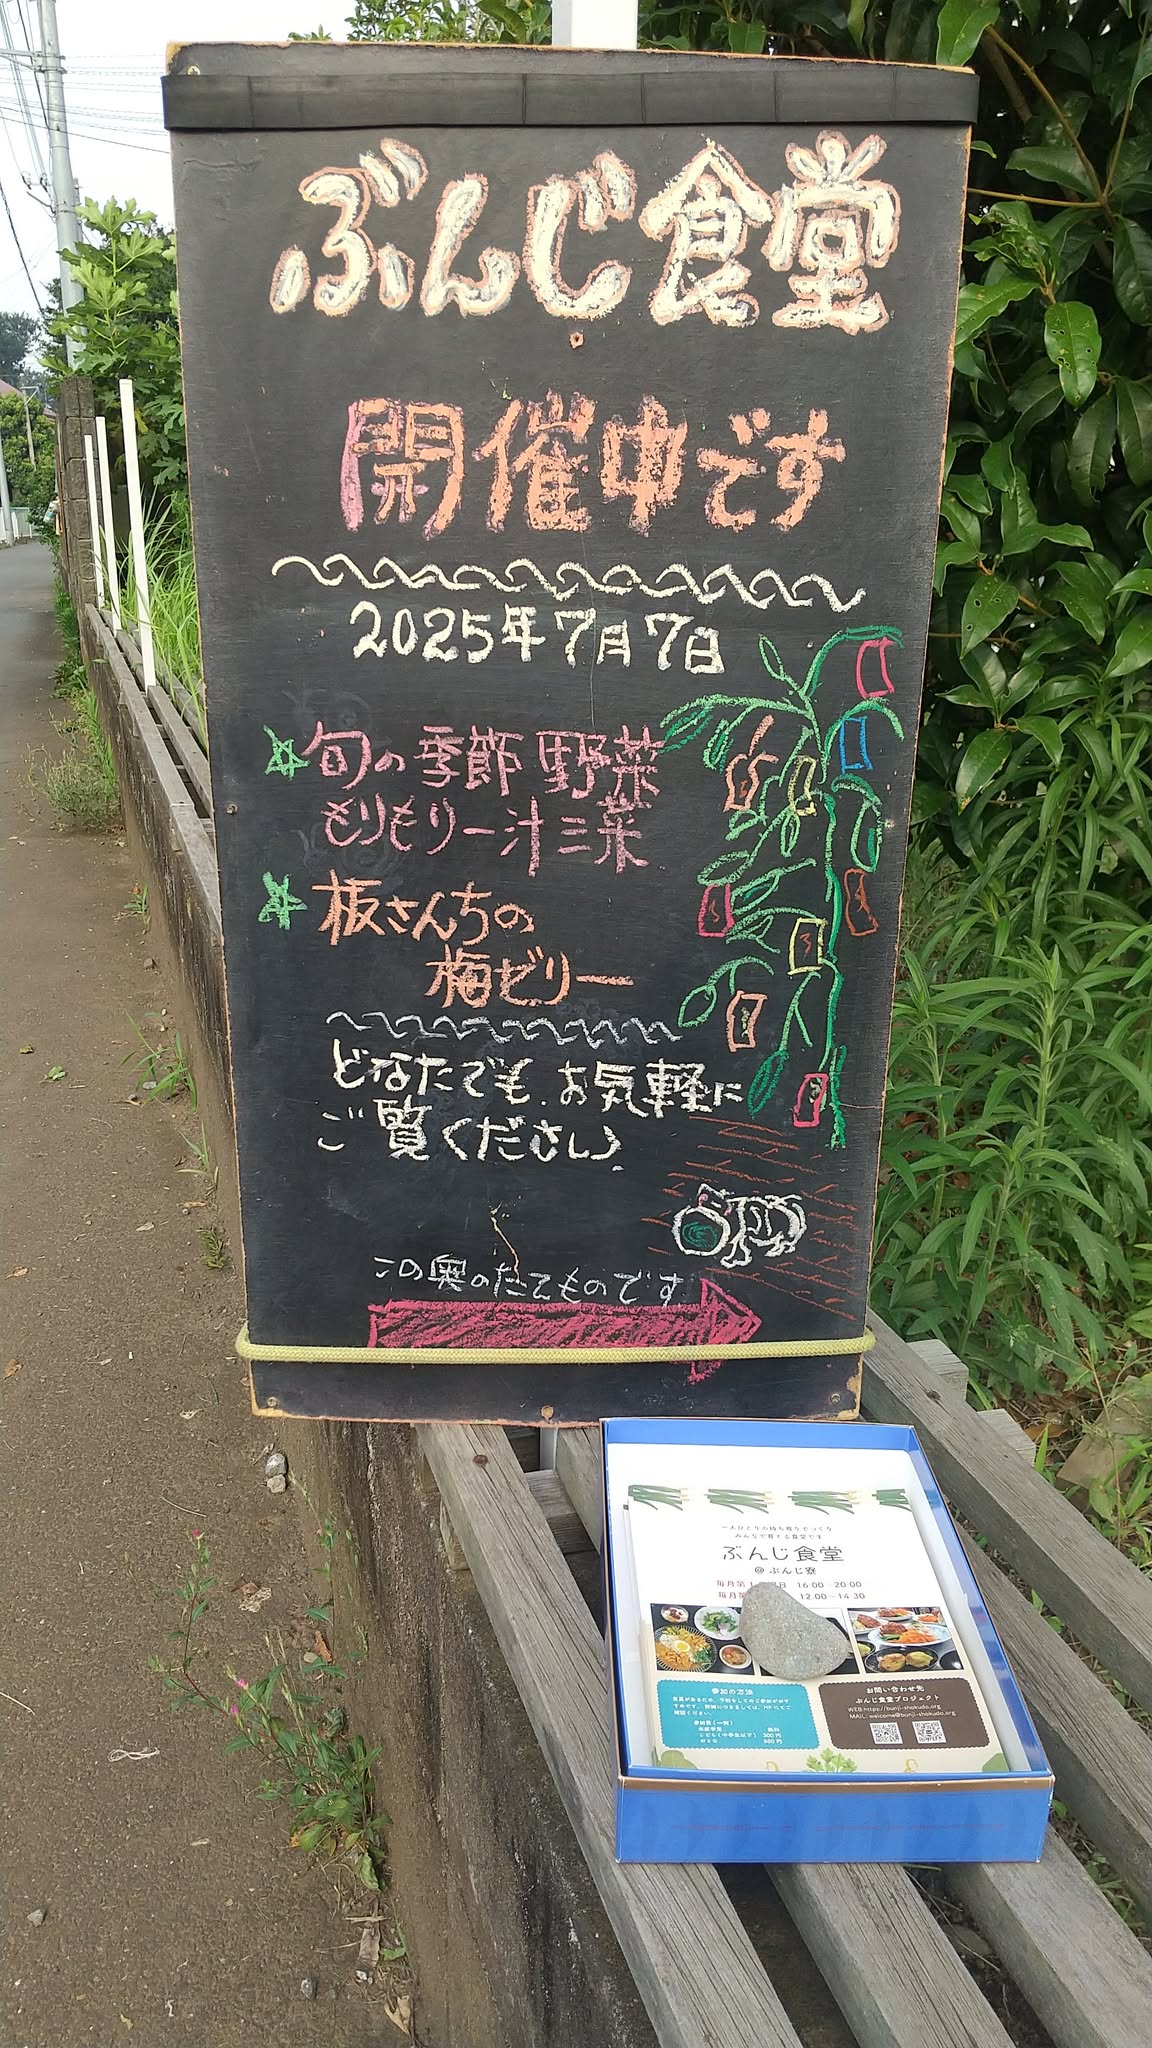 ぶんじ食堂
開催中です
2025年7月7日
旬の季節野菜
もりもり一汁三菜
板さんちの
梅ゼリー
どなたでも、お気軽に
ご覧ください
この奥のたてものです
一人ひとりの持ち寄りでつくり
みんなで育てる食堂です
ぶんじ食堂
@ぶんじ寮
毎月第1 日 16:00-20:00
毎月第 12:00-14:30
参加の方法
お問い合わせ先
ぶんじ食堂プロジェクト
WEB:https://bunji-shokudo.org
MAIL: welcome@bunji-shokudo.org
参加費(一例)
未就学児 無料
こども(中学生以下) 300円
おとな 500円